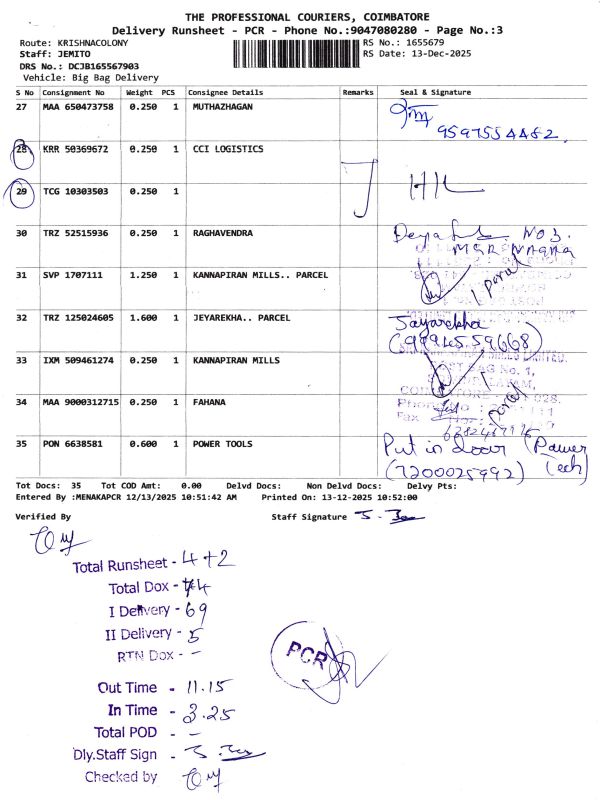 THE PROFESSIONAL COURIERS, COIMBATORE
Delivery Runsheet - PCR - Phone No.:9047080280 - Page No.:3
Route: KRISHNACOLONY RS No.: 1655679
Staff: JEMITO RS Date: 13-Dec-2025
DRS No.: DCJB165567903
Vehicle: Big Bag Delivery
S No Consignment No Weight PCS Consignee Details Remarks Seal & Signature
27 MAA 650473758 0.250 1 MUTHAZHAGAN
9597554482.
28 KRR 50369672 0.250 1 CCI LOGISTICS
29 TCG 10303503 0.250 1
30 TRZ 52515936 0.250 1 RAGHAVENDRA NO3.
MGR NAGAR
31 SVP 1707111 1.250 1 KANNAPIRAN MILLS.. PARCEL
32 TRZ 125024605 1.600 1 JEYAREKHA.. PARCEL Jayarekha
(99965 59668)
33 IXM 509461274 0.250 1 KANNAPIRAN MILLS
No. 1,
34 MAA 9000312715 0.250 1 FAHANA
028.
Fax
35 PON 6638581 0.600 1 POWER TOOLS Put in door (Power Tech)
(7200025992)
Tot Docs: 35 Tot COD Amt: 0.00 Delvd Docs: Non Delvd Docs: Delvy Pts:
Entered By :MENAKAPCR 12/13/2025 10:51:42 AM Printed On: 13-12-2025 10:52:00
Verified By Staff Signature
Total Runsheet - 4+2
Total Dox - 74
I Delivery - 69
II Delivery - 5
RTN Dox - -
PCR
Out Time - 11.15
In Time - 3.25
Total POD - -
Dly.Staff Sign -
Checked by